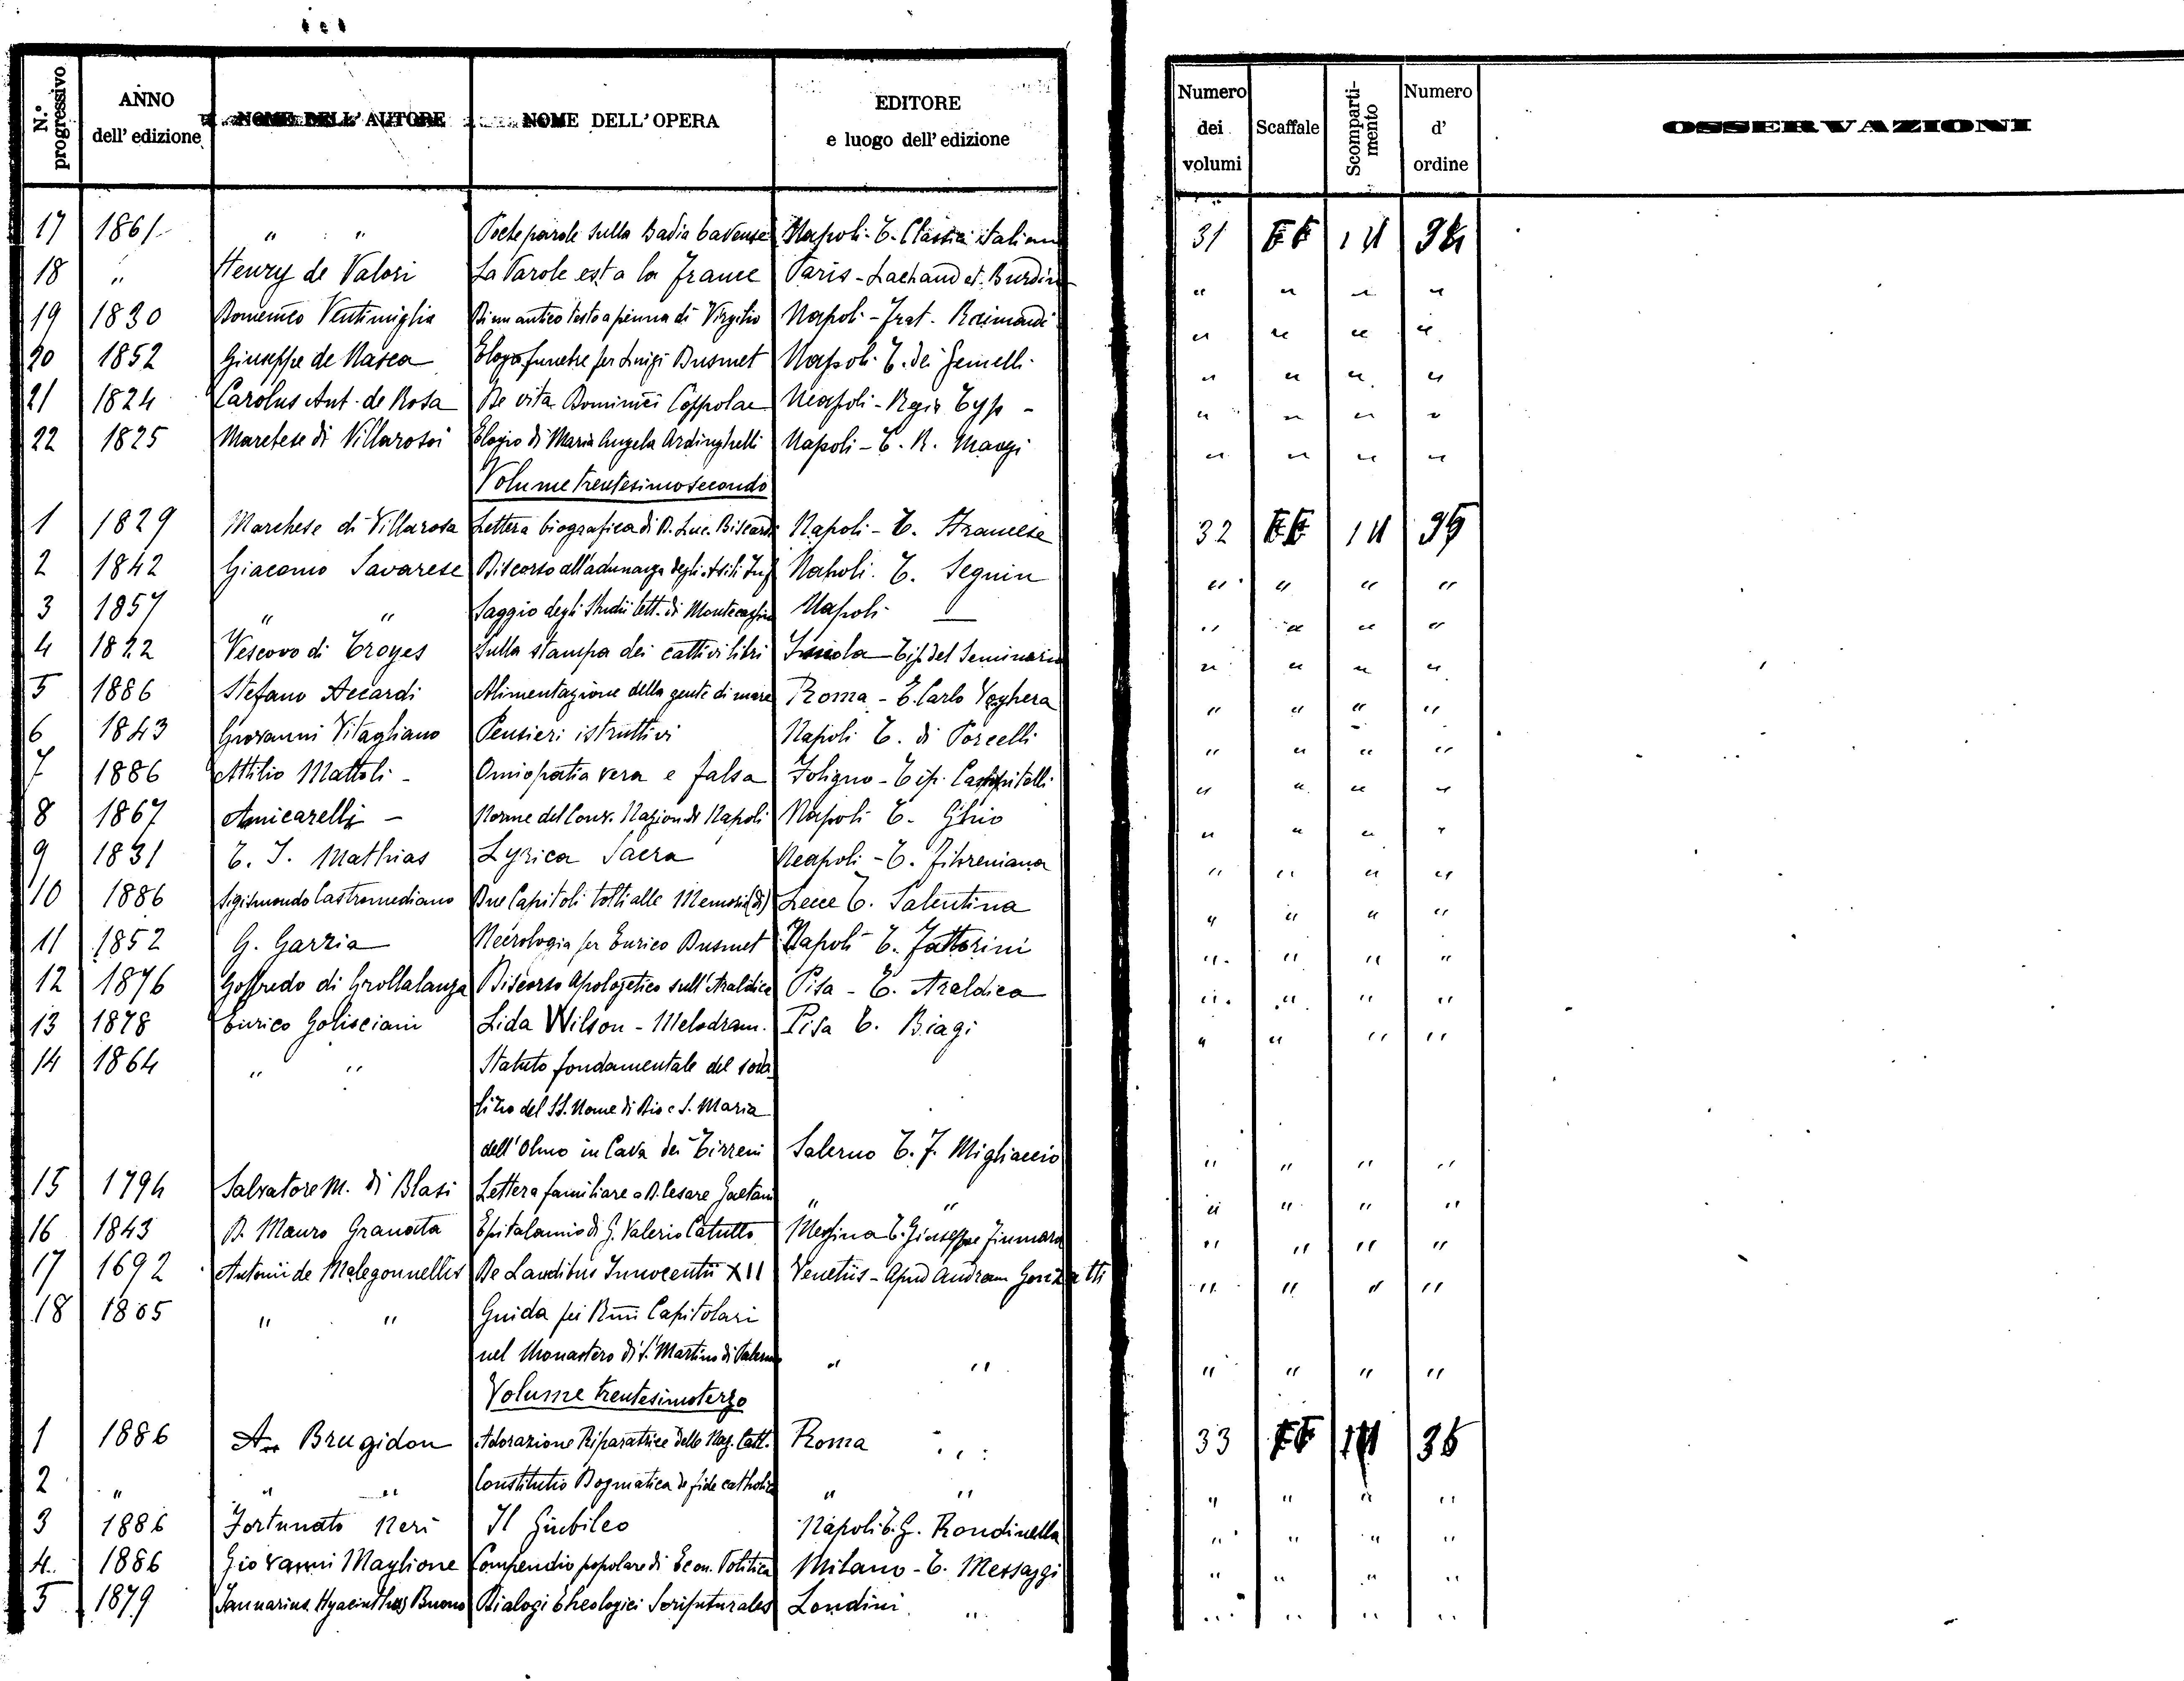 N.° progressivo ANNO dell' edizione NOME DELL' AUTORE NOME DELL' OPERA EDITORE e luogo dell' edizione Numero dei volumi Scaffale Scomparti-mento Numero d' ordine OSSERVAZIONI
17 1861 " " Poche parole sulla Badia Cavense Napoli - T. Classici italiani 31
18 " Henry de Valori La Parole est a la France Paris - Lachaud et Burdin " " " "
19 1830 Domenico Ventimiglia Di un antico testo a penna di Virgilio Napoli - Frat. Raimondi " " " "
20 1852 Giuseppe de Nasca Elogio funebre per Luigi Dusmet Napoli T. dei Gemelli " " " "
21 1824 Carolus Ant. de Rosa De vita Dominici Coppolae Neapoli - Regia Typ - " " " "
22 1825 Marchese di Villarosa Elogio di Maria Angela Ardinghelli Napoli - T. R. " " " "
Volume trentesimosecondo
1 1829 Marchese di Villarosa Lettera biografica di D. Luc. Biscardi Napoli - T. Francese 32
2 1842 Giacomo Savarese Discorso all'adunanza degli Asili Inf Napoli. T. Seguin " " " "
3 1857 " " Saggio degli Studii lett. di Montecassino Napoli — " " " "
4 1822 Vescovo di Troyes Sulla stampa dei cattivi libri Imola - Tip. del Seminario " " " "
5 1886 Stefano Accardi Alimentazione della gente di mare Roma - T. Carlo Voghera " " " "
6 1843 Giovanni Vitagliano Pensieri istruttivi Napoli T. di Porcelli " " " "
7 1886 Attilio Mattoli - Omiopatia vera e falsa Foligno - Tip. " " " "
8 1867 Amicarelli - Norme del Conv. Nazion di Napoli Napoli T. Ghio " " " "
9 1831 T. J. Mathias Lyrica Sacra Neapoli - T. Fibreniana " " " "
10 1886 Sigismondo Castromediano Due Capitoli tolti alle Memorie (di) Lecce T. Salentina " " " "
11 1852 G. Garzia Necrologia per Enrico Dusmet Napoli T. Fattorini " " " "
12 1876 Goffredo di Crollalanza Discorso Apologetico sull'Araldica Pisa - T. Araldica " " " "
13 1878 Enrico Golisciani Lida Wilson - Melodram. Pisa T. Biagi " " " "
14 1864 " " Statuto fondamentale del soda
lizio del SS. Nome di Dio e S. Maria
dell'Olmo in Cava dei Tirreni Salerno T. F. Migliaccio " " " "
15 1794 Salvatore M. di Blasi Lettera familiare a D. Cesare Gaetani " " " " " "
16 1843 D. Mauro Granata Epitalamio di G. Valerio Catullo Messina T. Giuseppe Fiumara " " " "
17 1692 Antonii de Malegonnellis De Laudibus Innocentii XII Venetiis - Apud Andream " " " "
18 1865 " " Guida pei Rmi Capitolari
nel Monastero di S. Martino di Palermo " " " " " "
Volume trentesimoterzo
1 1886 Brugidou Adorazione Riparatrice delle Naz. Catt. Roma 33
2 " " " Constitutio Dogmatica de fide catholica " " " " " "
3 1886 Fortunato Neri Il Giubileo Napoli T. G. Rondinella " " " "
4 1886 Giovanni Maglione Compendio popolare di Econ. Politica Milano - T. Messaggi " " " "
5 1879 Januarius Hyacinthus Buono Dialogi theologici Scripturales Londini " " " " "